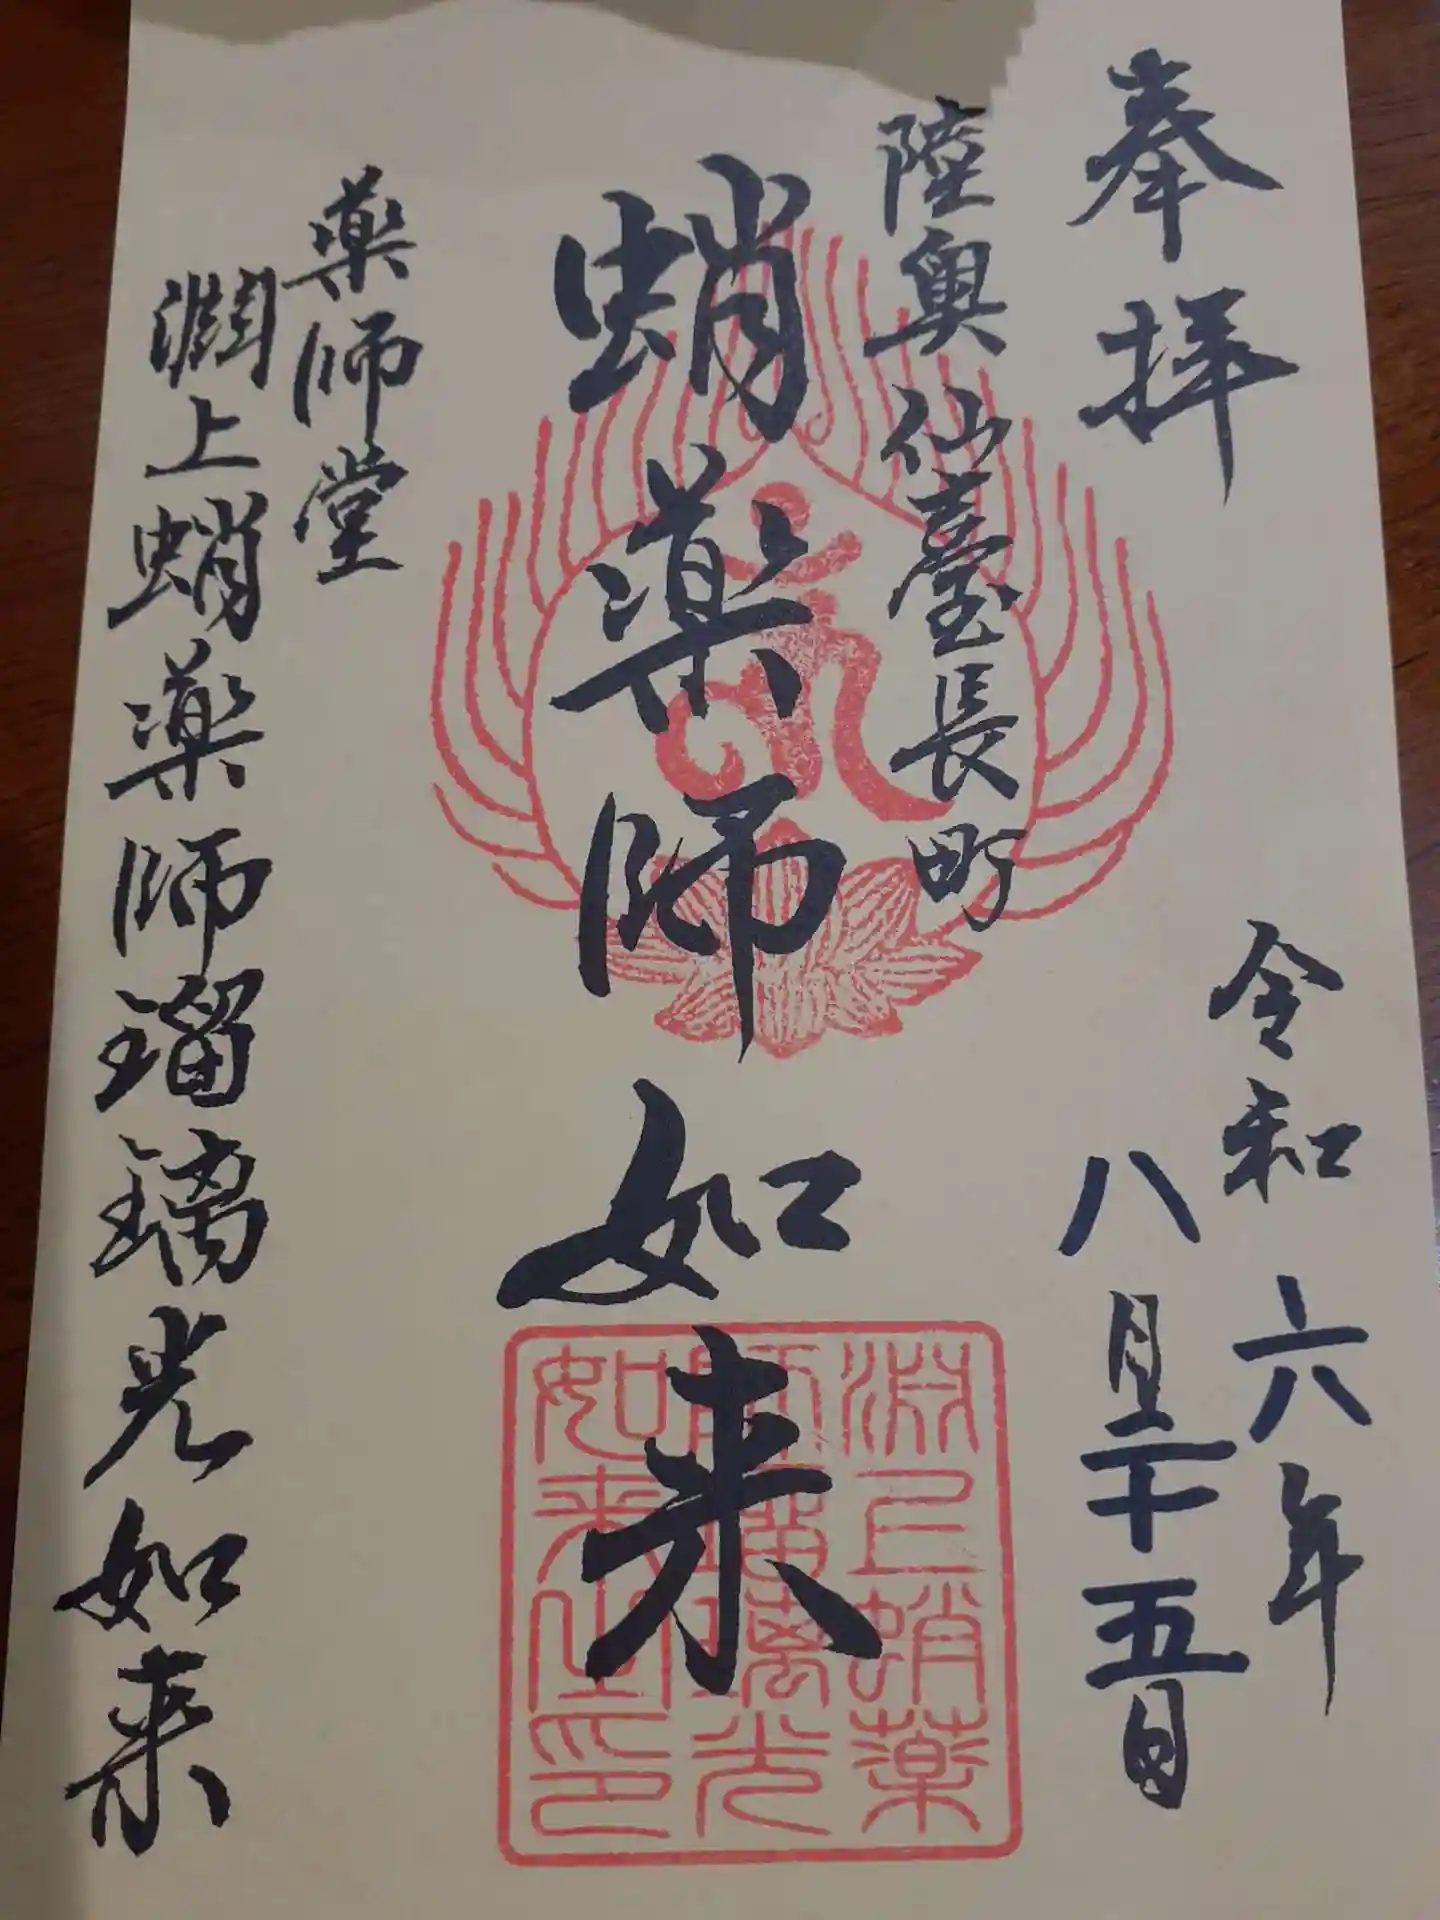 奉拝
令和六年
八月二十五日
陸奥仙臺長町
蛸薬師如来
薬師堂
淵上蛸薬師瑠璃光如来
淵上蛸薬
師瑠璃光
如来之印